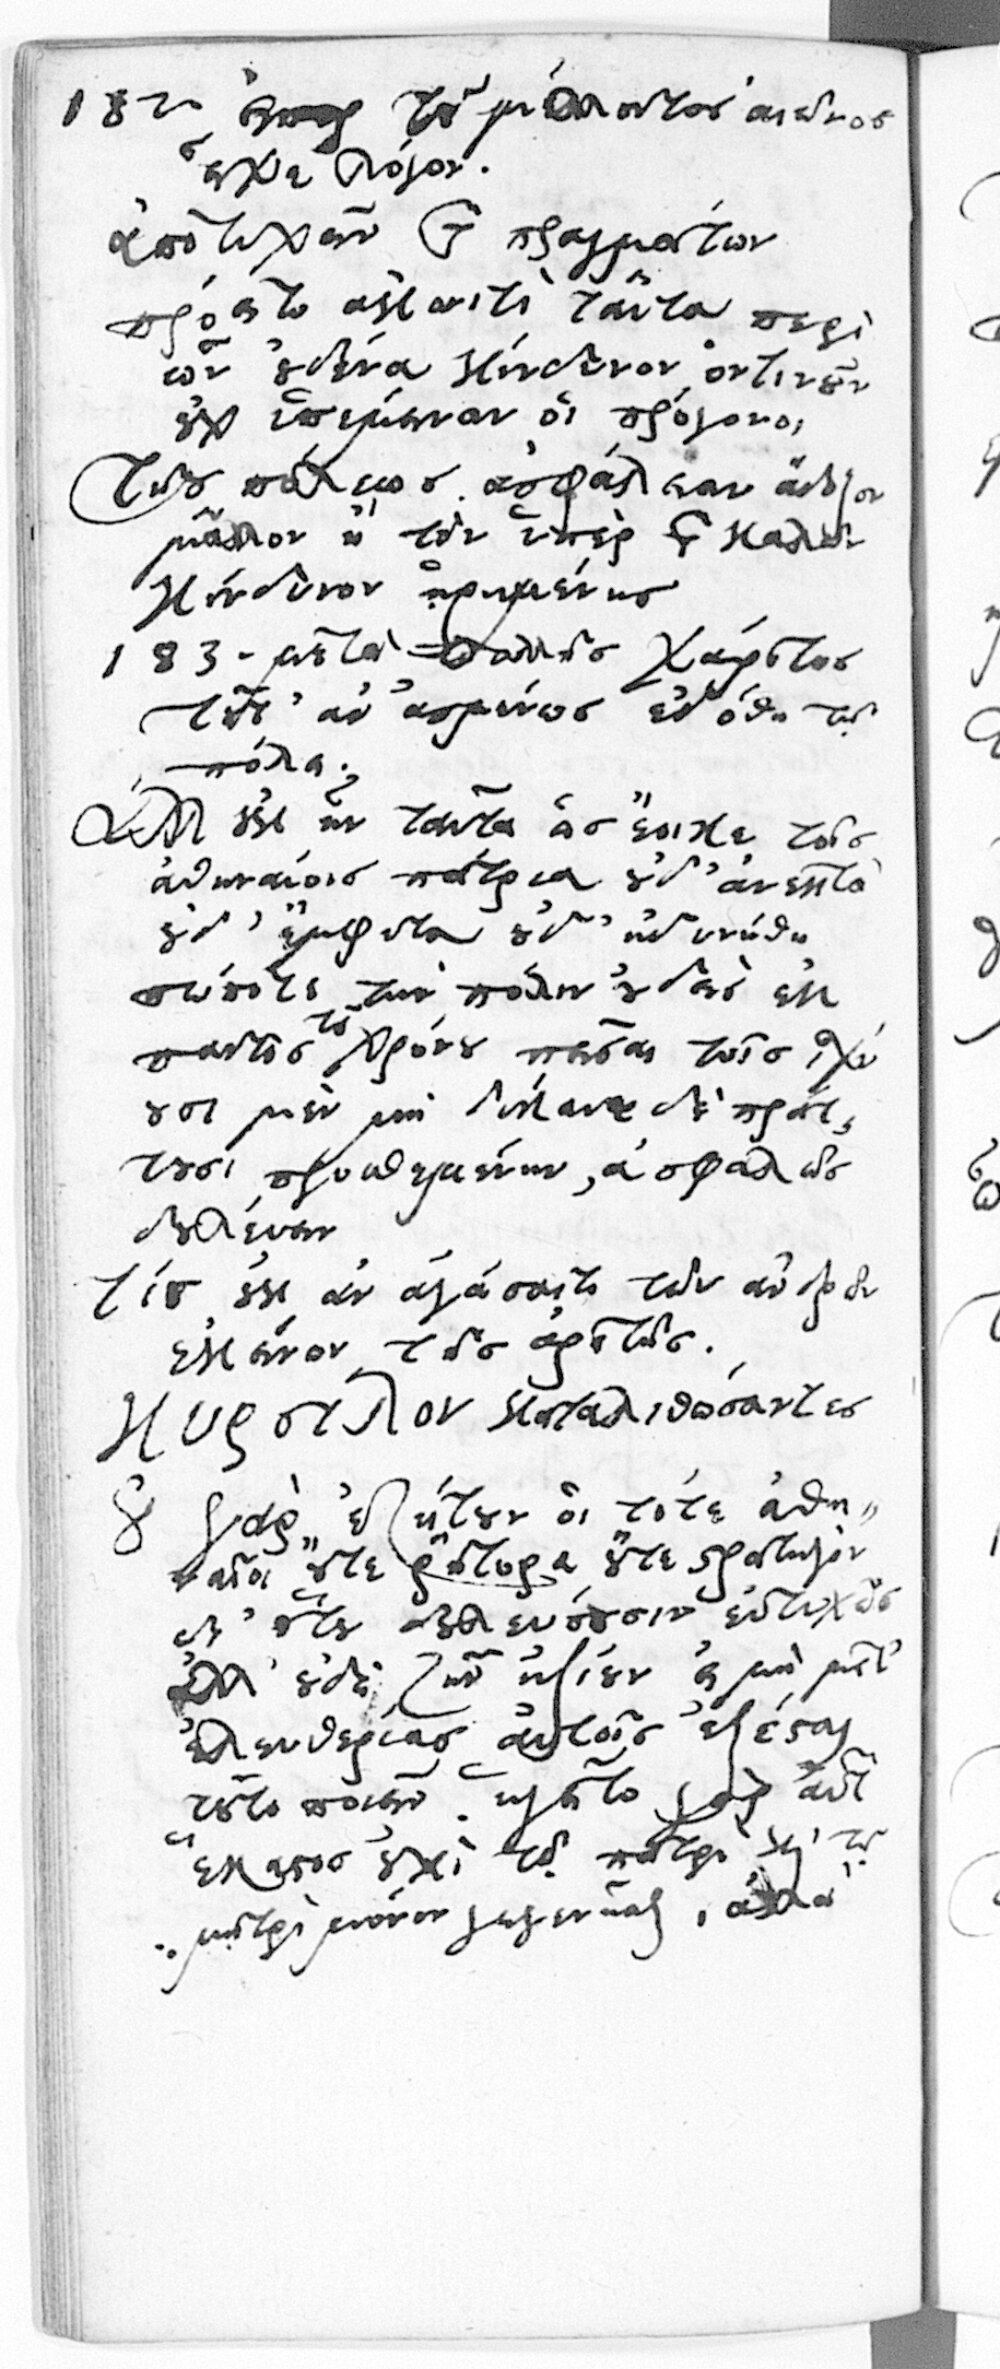 182 τοῦ μέλλοντος αἰῶνος
εἶχε λόγον.
ἀποτυχεῖν τῶν πραγμάτων
πρόοιτο ἀκονιτὶ ταῦτα περὶ
ὧν οὐδένα κίνδυνον ὁντινοῦν
οὐχ ὑπέμειναν οἱ πρόγονοι
τῆς πόλεως ἀσφάλειαν ἄδοξον
μᾶλλον ἢ τὸν ὑπὲρ τῶν καλῶν
κίνδυνον ᾑρημένης
183 - μετὰ πολλῆς χάριτος
τοῦτ' ἂν ἀσμένως ἐδόθη τῇ
πόλει.
Ἀλλ' οὐκ ἦν ταῦτα ὡς ἔοικε τοῖς
ἀθηναίοις πάτρια οὐδ' ἀνεκτὰ
οὐδ' ἔμφυτα οὐδ' ἠδυνήθη
πώποτε τὴν πόλιν οὐδεὶς ἐκ
παντὸς τοῦ χρόνου πεῖσαι τοῖς ἰσχύ
ουσι μὲν μὴ δίκαια δὲ πράτ,
τουσι προσθεμένην, ἀσφαλῶς
δουλεύειν
τίς οὐκ ἂν ἀγάσαιτο τῶν ἀνδρῶν
ἐκείνων τῆς ἀρετῆς.
Κυρσίλον καταλιθώσαντες
οὐ γὰρ ἐζήτουν οἱ τότε ἀθη,,
ναῖοι οὔτε ῥήτορα οὔτε στρατηγὸν
δι' ὅτου δουλεύσουσιν εὐτυχῶς
ἀλλ' οὐδὲ ζῆν ἠξίουν εἰ μὴ μετ'
ἐλευθερίας αὐτοῖς ἐξέσται
τοῦτο ποιεῖν. ἡγεῖτο γὰρ αὐτῶν
ἕκαστος οὐχὶ τῷ πατρὶ καὶ τῇ
μητρὶ μόνον γεγενῆσθαι, ἀλλὰ